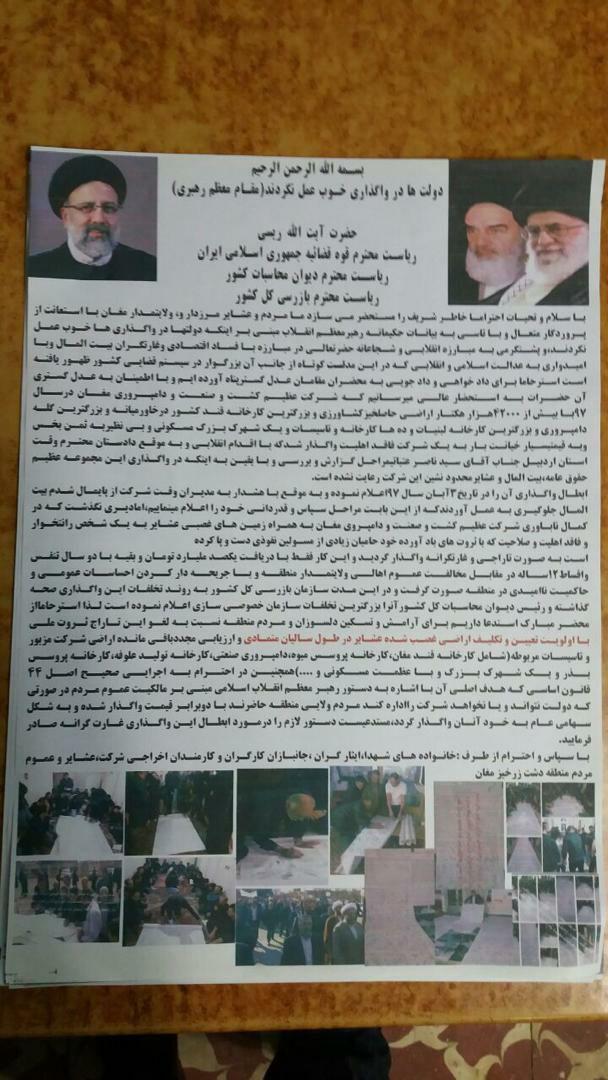 بسمه الله الرحمن الرحیم
دولت ها در واگذاری خوب عمل نکردند(مقام معظم رهبری)
حضرت آیت الله رییسی
ریاست محترم قوه قضائیه جمهوری اسلامی ایران
ریاست محترم دیوان محاسبات کشور
ریاست محترم بازرسی کل کشور
با سلام و تحیات احتراما خاطر شریف را مستحضر می سازد ما مردم و عشایر مرزدار و، ولایتمدار مغان با استعانت از
پروردکار متعال و با تاسی به بیانات حکیمانه رهبرمعظم انقلاب مبنی بر اینکه دولتها در واگذاری ها خوب عمل
نکردند، و پشتگرمی به مبارزه انقلابی و شجاعانه حضرتعالی در مبارزه با فساد اقتصادی وغارتگران بیت المال وبا
امیدواری به عدالت اسلامی و انقلابی که در این مدت کوتاه از جانب آن بزرگوار در سیستم قضایی کشور ظهور یافته
است استرحاما برای داد خواهی و داد جویی به محضرتان مقامان عدل گسترپناه آورده ایم و با اطمینان به عدل گستری
آن حضرات به استحضار عالی میرسانیم که شرکت عظیم کشت و صنعت و دامپروری مغان درسال
۹۷با بیش از ۴۲۰۰۰هزار هکتار اراضی حاصلخیزکشاورزی و بزرگترین کارخانه قند کشور درخاورمیانه و بزرگترین گله
دامپروری و بزرگترین کارخانه لبنیات و ده ها کارخانه و تاسیسات و یک شهرک بزرک مسکونی و بی نظیربه ثمن بخس
وبه قیمتبسیار خیانت بار به یک شرکت فاقد اهلیت واگذار شدکه با اقدام انقلابی و به موقع دادستان محترم وقت
استان اردبیل جناب آقای سید ناصر عتباتیمراحل گزارش و بررسی و با یقین به اینکه در واگذاری این مجموعه عظیم
حقوق عامه،بیت المال و عشایرمحدود نشین این شرکت رعایت نشده است.
ابطال واگذاری آن را در تاریخ۳آبان سال ۹۷اعلام نموده و به موقع با هشدار به مدیران وقت شرکت از پایمال شدم بیت
المال جلوگیری به عمل آوردندکه از این بابت مراحل سپاس و قدردانی خود را اعلام مینماییم،امادیری نگذشت که در
کمال ناباوری شرکت عظیم کشت و صنعت و دامپروی مغان به همراه زمین های غصبی عشایر به یک شخص رانتخوار
و فاقد اهلیت و صلاحیت که با ثروت های باد آورده خود حامیان زیادی از مسولین نفوذی دست و پا کرده
است به صورت تاراجی و غارتگرانه واگذار گردید و این کار فقط با دریافت یکصد ملیارد تومان و بقیه با دو سال تنفس
واقساط۱۲ساله در مقابل مخالفت عموم اهالی ولایتمدار منطقه و با جریحه دار کردن احساسات عمومی و
حاکمیت ناامیدی در منطقه صورت گرفت و در این مدت سازمان بازرسی کل کشور به روند تخلفات این واگذاری صحه
گذاشته و رئیس دیوان محاسبات کل کشورآنرا بزرگترین تخلفات سازمان خصوصی سازی اعلام نموده است لذا استرحامااز
محضر مبارک استدعا داریم برای آرامش و تسکین دلسوزان و مردم منطقه نسبت به لغو این تاراج ثروت ملی
با اولویت تعیین و تکلیف اراضی غصب شده عشایر در طول سالیان متمادی و ارزیابی مجددباقی مانده اراضی شرکت مزبور
و تاسیسات مربوطه(شامل کارخانه قند مغان،کارخانه پروسس میوه،دامپروری صنعتی،کارخانه تولید علوفه،کارخانه پروسس
بذر و یک شهرک بزرگ و با عظمت مسکونی و ....)همچنین در احترام به اجرایی صحیح اصل ۴۴
قانون اساسی که هدف اصلی آن با اشاره به دستور رهبر معظم انقلاب اسلامی مبنی بر مالکیت عموم مردم در صورتی
که دولت نتواند و یا نخواهد شرکت رااداره کند مردم ولایی منطقه حاضرند با دوبرابر قیمت واگذار شده و به شکل
سهامی عام به خود آنان واگذار گردد،مستدعیست دستور لازم را درمورد ابطال این واگذاری غارت گرانه صادر
فرمایید.
با سپاس و احترام از طرف :خانواده های شهدا،ایثار گران ،جانبازان کارگران و کارمندان اخراجی شرکت،عشایر و عموم
مردم منطقه دشت زرخیز مغان